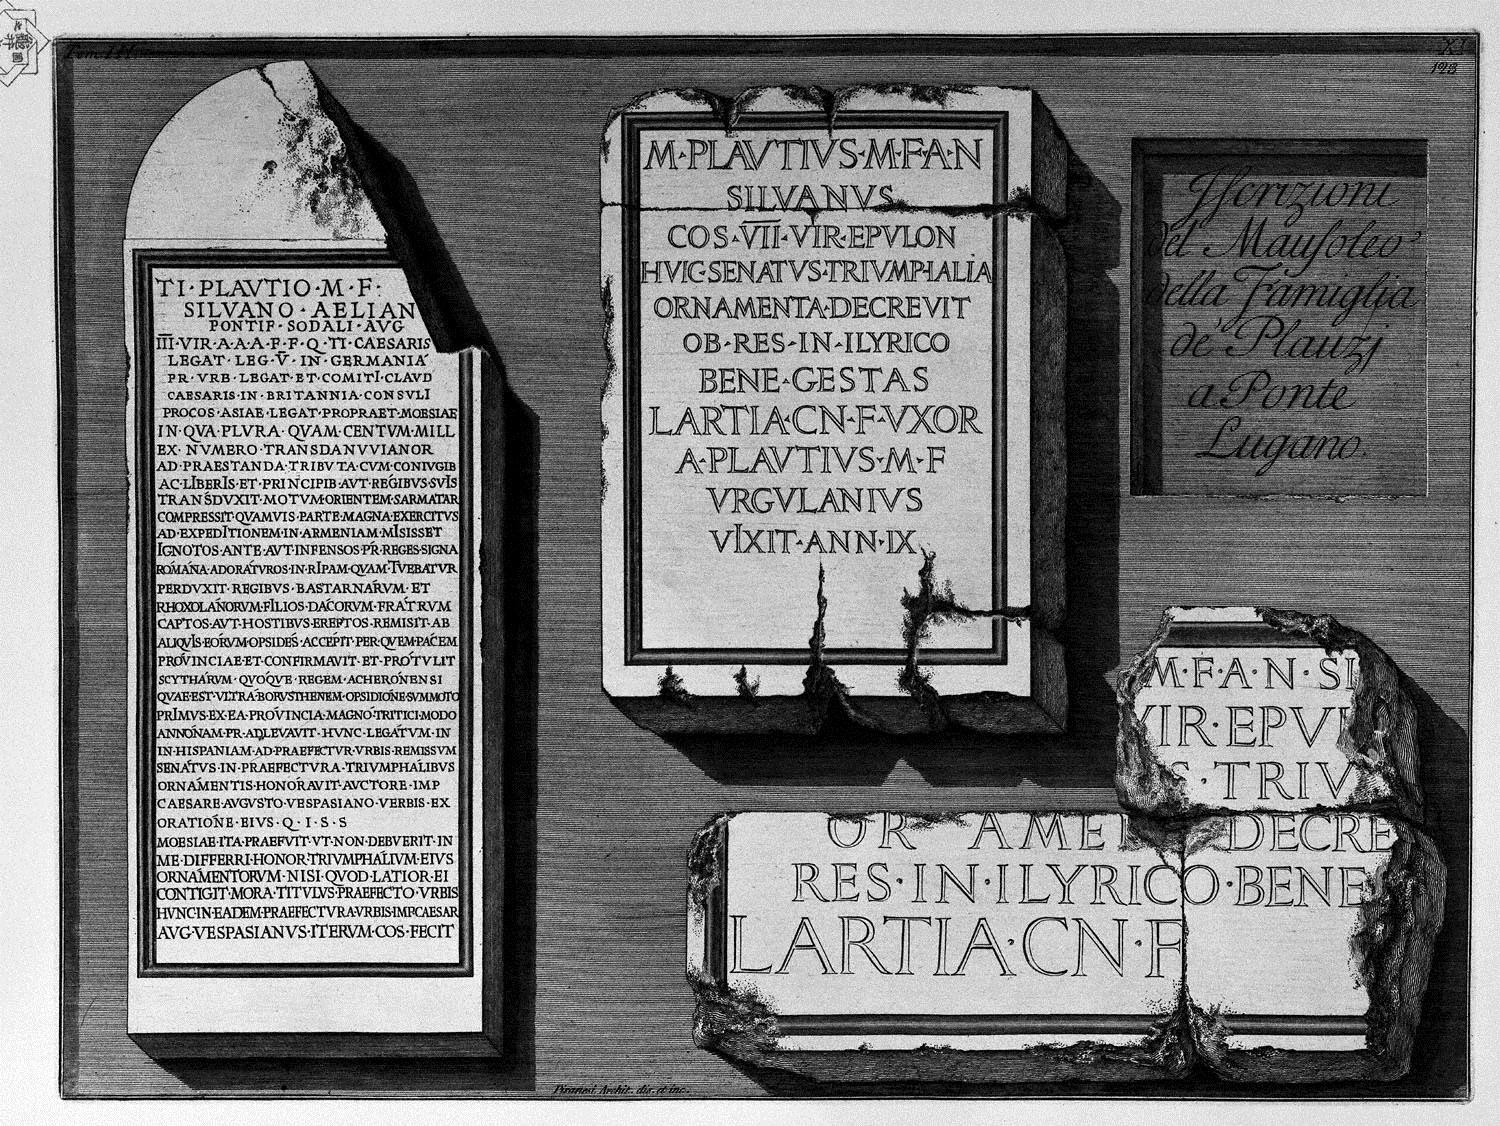 Tom. III.
XI
123
TI·PLAVTIO·M·F·
SILVANO·AELIAN
PONTIF·SODALI·AVG
III·VIR·A·A·A·F·F·Q·TI·CAESARIS
LEGAT·LEG·V·IN·GERMANIA
PR·VRB·LEGAT·ET·COMITI·CLAVD
CAESARIS·IN·BRITANNIA·CONSVLI
PROCOS·ASIAE·LEGAT·PROPRAET·MOESIAE
IN·QVA·PLVRA·QVAM·CENTVM·MILL
EX·NVMERO·TRANSDANVVIANOR
AD·PRAESTANDA·TRIBVTA·CVM·CONIVGIB
AC·LIBERIS·ET·PRINCIPIB·AVT·REGIBVS·SVIS
TRANSDVXIT·MOTVM·ORIENTEM·SARMATAR
COMPRESSIT·QVAMVIS·PARTE·MAGNA·EXERCITVS
AD·EXPEDITIONEM·IN·ARMENIAM·MISISSET
IGNOTOS·ANTE·AVT·INFENSOS·PR·REGES·SIGNA
ROMANA·ADORATVROS·IN·RIPAM·QVAM·TVEBATVR
PERDVXIT·REGIBVS·BASTARNARVM·ET
RHOXOLANORVM·FILIOS·DACORVM·FRATRVM
CAPTOS·AVT·HOSTIBVS·EREPTOS·REMISIT·AB
ALIQVIS·EORVM·OPSIDES·ACCEPIT·PER·QVEM·PACEM
PROVINCIAE·ET·CONFIRMAVIT·ET·PROTVLIT
SCYTHARVM·QVOQVE·REGEM·ACHERONENSI
QVAE·EST·VLTRA·BORVSTHENEM·OPSIDIONE·SVMMOTO
PRIMVS·EX·EA·PROVINCIA·MAGNO·TRITICI·MODO
ANNONAM·PR·ADLEVAVIT·HVNC·LEGATVM·IN
IN·HISPANIAM·AD·PRAEFECTVR·VRBIS·REMISSVM
SENATVS·IN·PRAEFECTVRA·TRIVMPHALIBVS
ORNAMENTIS·HONORAVIT·AVCTORE·IMP
CAESARE·AVGVSTO·VESPASIANO·VERBIS·EX
ORATIONE·EIVS·Q·I·S·S
MOESIAE·ITA·PRAEFVIT·VT·NON·DEBVERIT·IN
ME·DIFFERRI·HONOR·TRIVMPHALIVM·EIVS
ORNAMENTORVM·NISI·QVOD·LATIOR·EI
CONTIGIT·MORA·TITVLVS·PRAEFECTO·VRBIS
HVNC·IN·EADEM·PRAEFECTVRA·VRBIS·IMP·CAESAR
AVG·VESPASIANVS·ITERVM·COS·FECIT
M·PLAVTIVS·M·F·A·N
SILVANVS
COS·VII·VIR·EPVLON
HVIC·SENATVS·TRIVMPHALIA
ORNAMENTA·DECREVIT
OB·RES·IN·ILYRICO
BENE·GESTAS
LARTIA·CN·F·VXOR
A·PLAVTIVS·M·F
VRGVLANIVS
VIXIT·ANN·IX
Iscrizioni
del Mausoleo
della Famiglia
de' Plauzj
a Ponte
Lugano.
M·F·A·N·SI
VIR·EPVL
S·TRIV
OR AMEN DECRE
RES·IN·ILYRICO·BENE
LARTIA·CN·F
Piranesi Archit. dis. et inc.